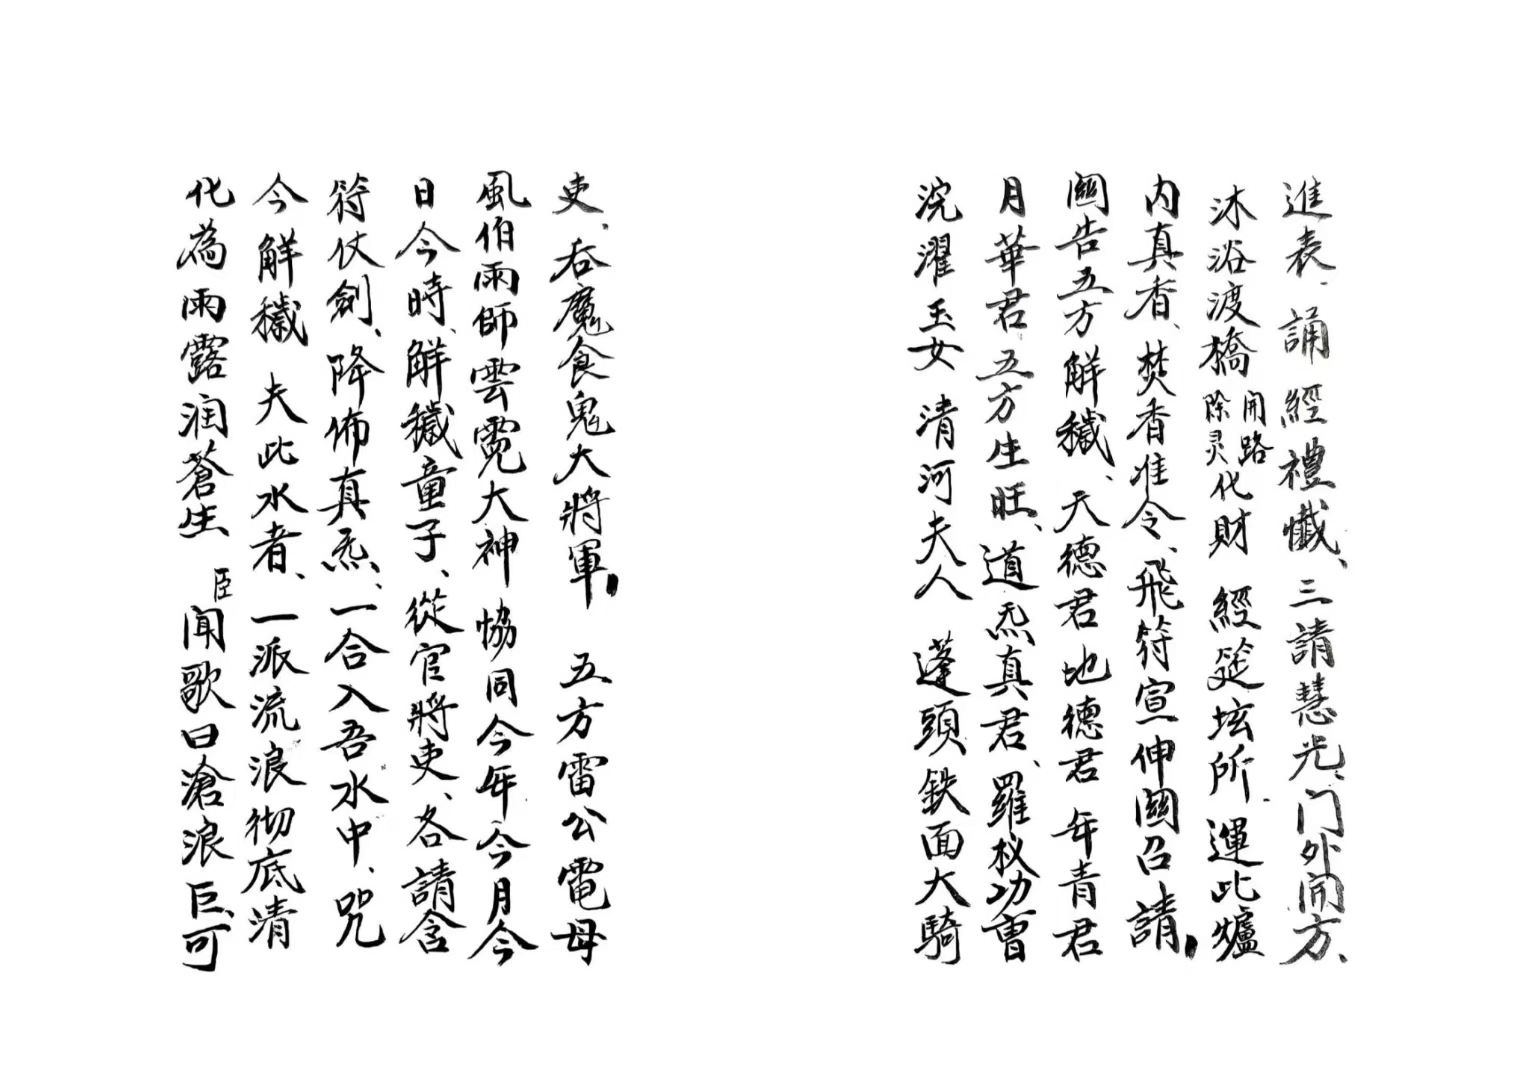 進表、誦經禮懺、三請慧光、门外開方、
沐浴渡橋開路除灵化財 經筵坛所、運此爐
内真香、焚香准令、飛符宣伸關召請
關告五方解穢、天德君地德君年青君
月華君五方生旺、道炁真君、羅杈功曺
浣濯玉女清河夫人 蓬頭鉄面大騎
吏、吞魔食鬼大將軍 五方雷公電母
風伯雨師雲霓大神 協同今年今月今
日今時、解穢童子、從官將吏、各請含
符仗劍、降佈真炁、一合入吾水中、咒
今解穢 夫此水者、一派流浪彻底清
化為雨露润蒼生 臣闻歌曰滄浪巨可